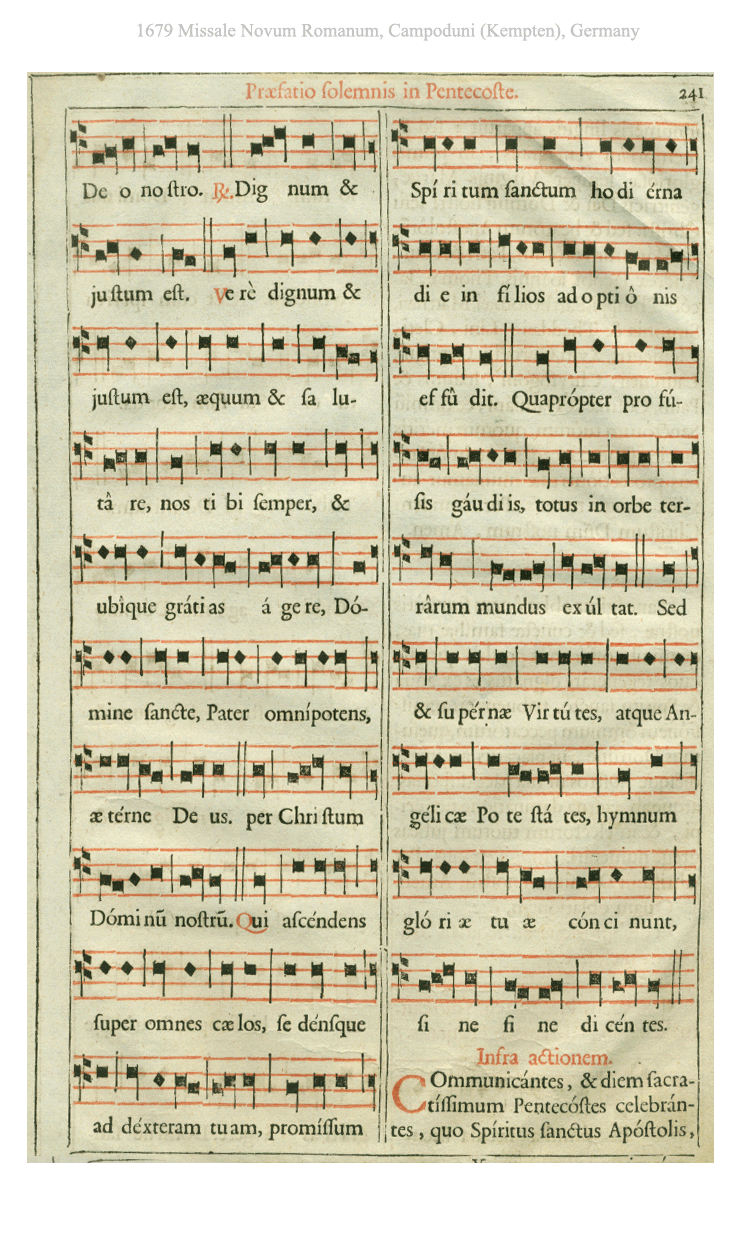 1679 Missale Novum Romanum, Campoduni (Kempten), Germany
Præfatio ſolemnis in Pentecoſte.
241
De o no ſtro. ℟. Dig num &
ju ſtum eſt. Ve rè dignum &
juſtum eſt, æquum & ſa lu-
tâ re, nos ti bi ſemper, &
ubîque gráti as á ge re, Dó-
mine ſancte, Pater omnípotens,
æ térne De us. per Chri ſtum
Dómi nũ noſtrũ. Qui aſcéndens
ſuper omnes cæ los, ſe dénſque
ad déxteram tu am, promíſſum
Spí ri tum ſanctum ho di érna
di e in fí lios ad o pti ô nis
ef fû dit. Quaprópter pro fú-
ſis gáu di is, totus in orbe ter-
rârum mundus ex úl tat. Sed
& ſu pérnæ Vir tú tes, atque An-
géli cæ Po te ſtá tes, hymnum
gló ri æ tu æ cón ci nunt,
ſi ne fi ne di cén tes.
Infra actionem.
COmmunicántes, & diem ſacra-
tíſſimum Pentecóſtes celebrán-
tes, quo Spíritus ſanctus Apóſtolis,